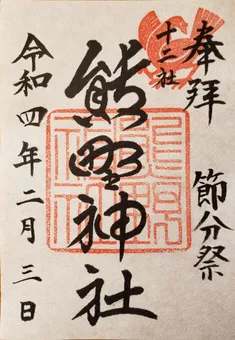 奉拝
節分祭
十二社
熊野神社
令和四年二月三日